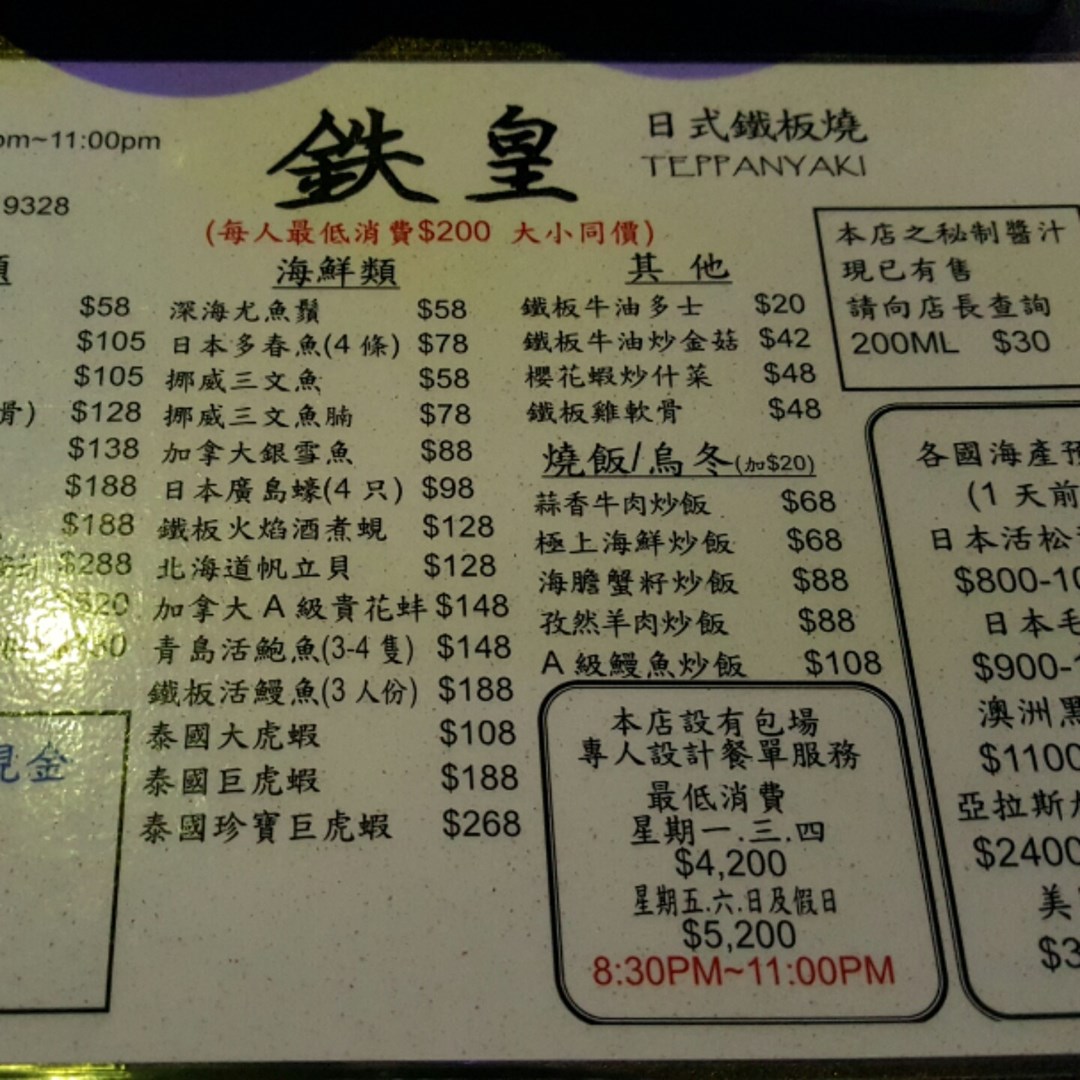 pm~11:00pm
9328
鉄皇
日式鐵板燒
TEPPANYAKI
(每人最低消費$200 大小同價)
$58
$105
$105
骨) $128
$138
$188
$188
$288
海鮮類
深海尤魚鬚 $58
日本多春魚(4 條) $78
挪威三文魚 $58
挪威三文魚腩 $78
加拿大銀雪魚 $88
日本廣島蠔(4 只) $98
鐵板火焰酒煮蜆 $128
北海道帆立貝 $128
加拿大 A 級貴花蚌 $148
青島活鮑魚(3-4 隻) $148
鐵板活鰻魚(3 人份) $188
泰國大虎蝦 $108
泰國巨虎蝦 $188
泰國珍寶巨虎蝦 $268
其他
鐵板牛油多士 $20
鐵板牛油炒金菇 $42
櫻花蝦炒什菜 $48
鐵板雞軟骨 $48
燒飯/烏冬(加$20)
蒜香牛肉炒飯 $68
極上海鮮炒飯 $68
海膽蟹籽炒飯 $88
孜然羊肉炒飯 $88
A 級鰻魚炒飯 $108
本店設有包場
專人設計餐單服務
最低消費
星期一.三.四
$4,200
星期五.六.日及假日
$5,200
8:30PM~11:00PM
本店之秘制醬汁
現已有售
請向店長查詢
200ML $30
各國海產預
(1 天前
日本活松
$800-10
日本毛
$900-1
澳洲黑
$1100
亞拉斯
$2400
美
$3
現金